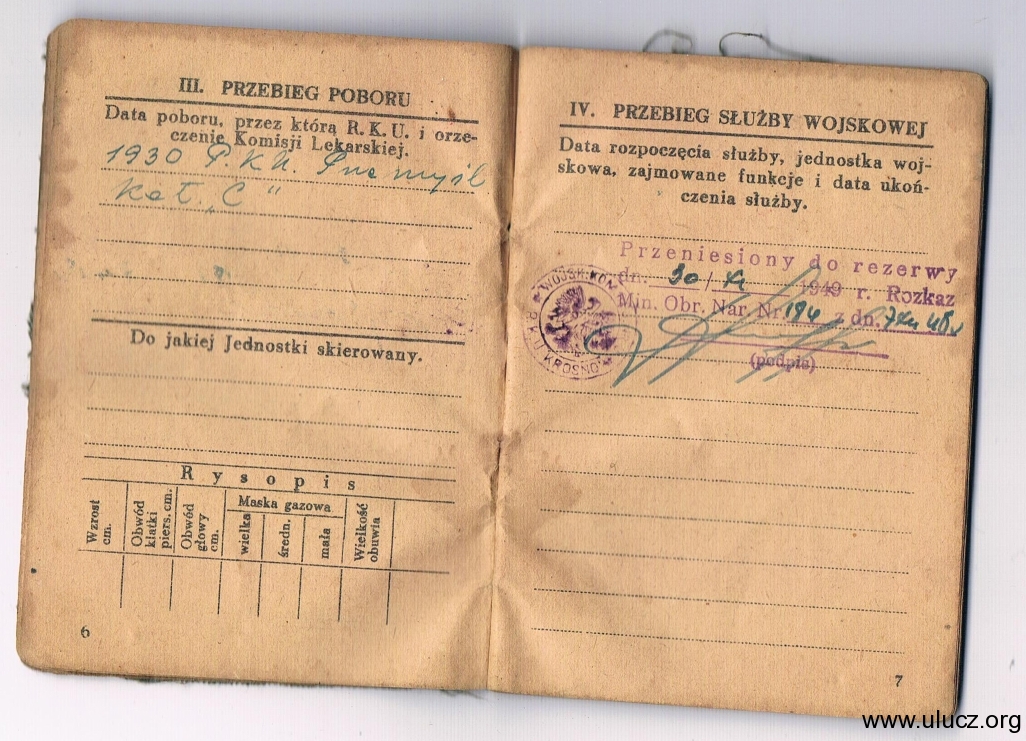 III. PRZEBIEG POBORU
Data poboru, przez którą R. K. U. i orze-
czenie Komisji Lekarskiej.
1930 P.K.U. Przemyśl
Kat. „C"
Do jakiej Jednostki skierowany.
Rysopis
Wzrost cm.
Obwód klatki piers. cm.
Obwód głowy cm.
Maska gazowa
wielka
średn.
mała
Wielkość obuwia
6
IV. PRZEBIEG SŁUŻBY WOJSKOWEJ
Data rozpoczęcia służby, jednostka woj-
skowa, zajmowane funkcje i data ukoń-
czenia służby.
Przeniesiony do rezerwy
dn. 30/ 1949 r. Rozkaz
Min. Obr. Nar. Nr 194 z dn.
(podpis)
WOJSK. KOM.
KROSNO
7
www.ulucz.org